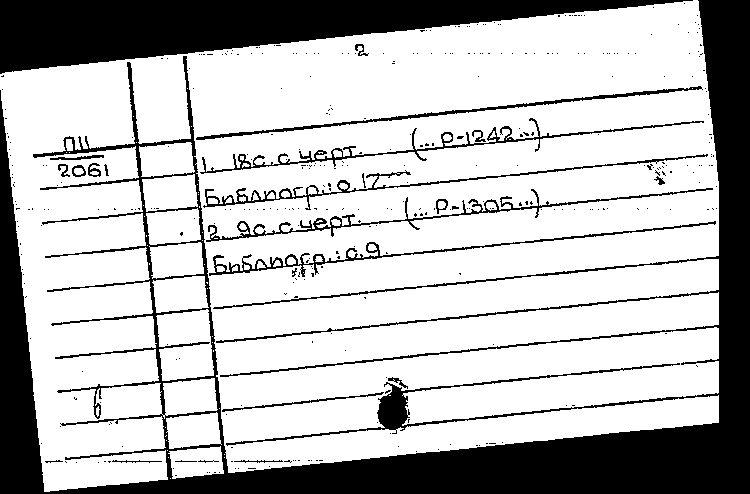 2
П11
2061
1. 18с. с черт. (... Р-1242 ...).
Библиогр.: с. 17
2. 9с. с черт. (... Р-1305 ...).
Библиогр.: с. 9.
в